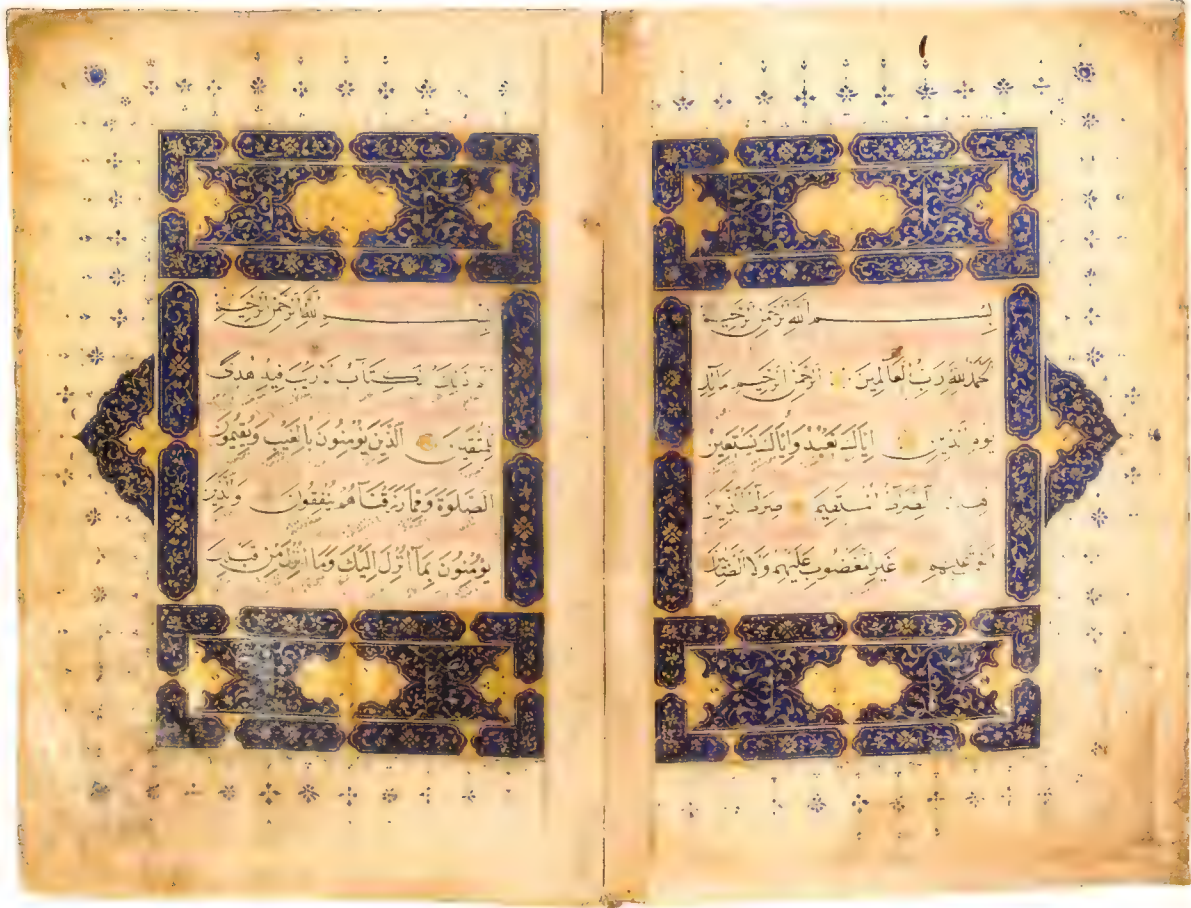 بسم الله الرحمن الرحيم
الحمد لله رب العالمين الرحمن الرحيم مالك
يوم الدين اياك نعبد واياك نستعين
اهدنا الصراط المستقيم صراط الذين
انعمت عليهم غير المغضوب عليهم ولا الضالين
بسم الله الرحمن الرحيم
الم ذلك الكتاب لا ريب فيه هدى
للمتقين الذين يؤمنون بالغيب ويقيمون
الصلوة ومما رزقناهم ينفقون والذين
يؤمنون بما انزل اليك وما انزل من قبلك